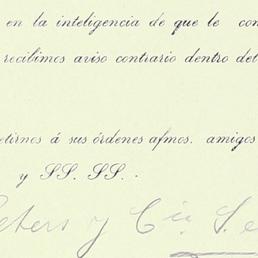 en la inteligencia de que le con
recibimos aviso contrario dentro del
etirnos á sus órdenes afmos. amigos
y SS. SS.
eters y Cía. S. e